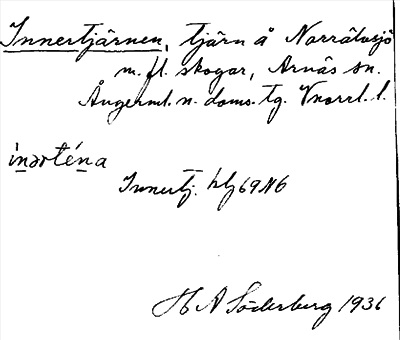 Innertjärnen, tjärn å Norrälvsjö
m. fl. skogar, Arnäs sn.
Ångerml. n. doms. tg. Vnorrl. l.
ìnərténa
Innertj. hlj69N6
H A Söderberg 1936